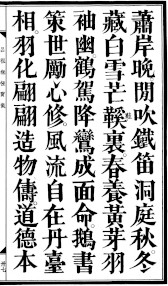 蕭岸晚閒吹鐵笛洞庭秋冬
藏白雪芒鞵裏春養黃芽羽
袖幽鶴駕降鸞成面命鵝書
策世勵心修風流自在丹臺
相羽化翩翩造物儔道德本